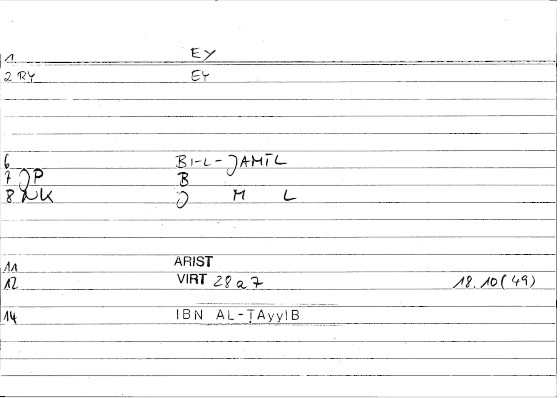 1 EY
2 RY EY
6 BI-L-JAMĪL
7 JP B
8 NK J M L
11 ARIST
12 VIRT 28a7 18.10(49)
14 IBN AL-ṬAyyIB